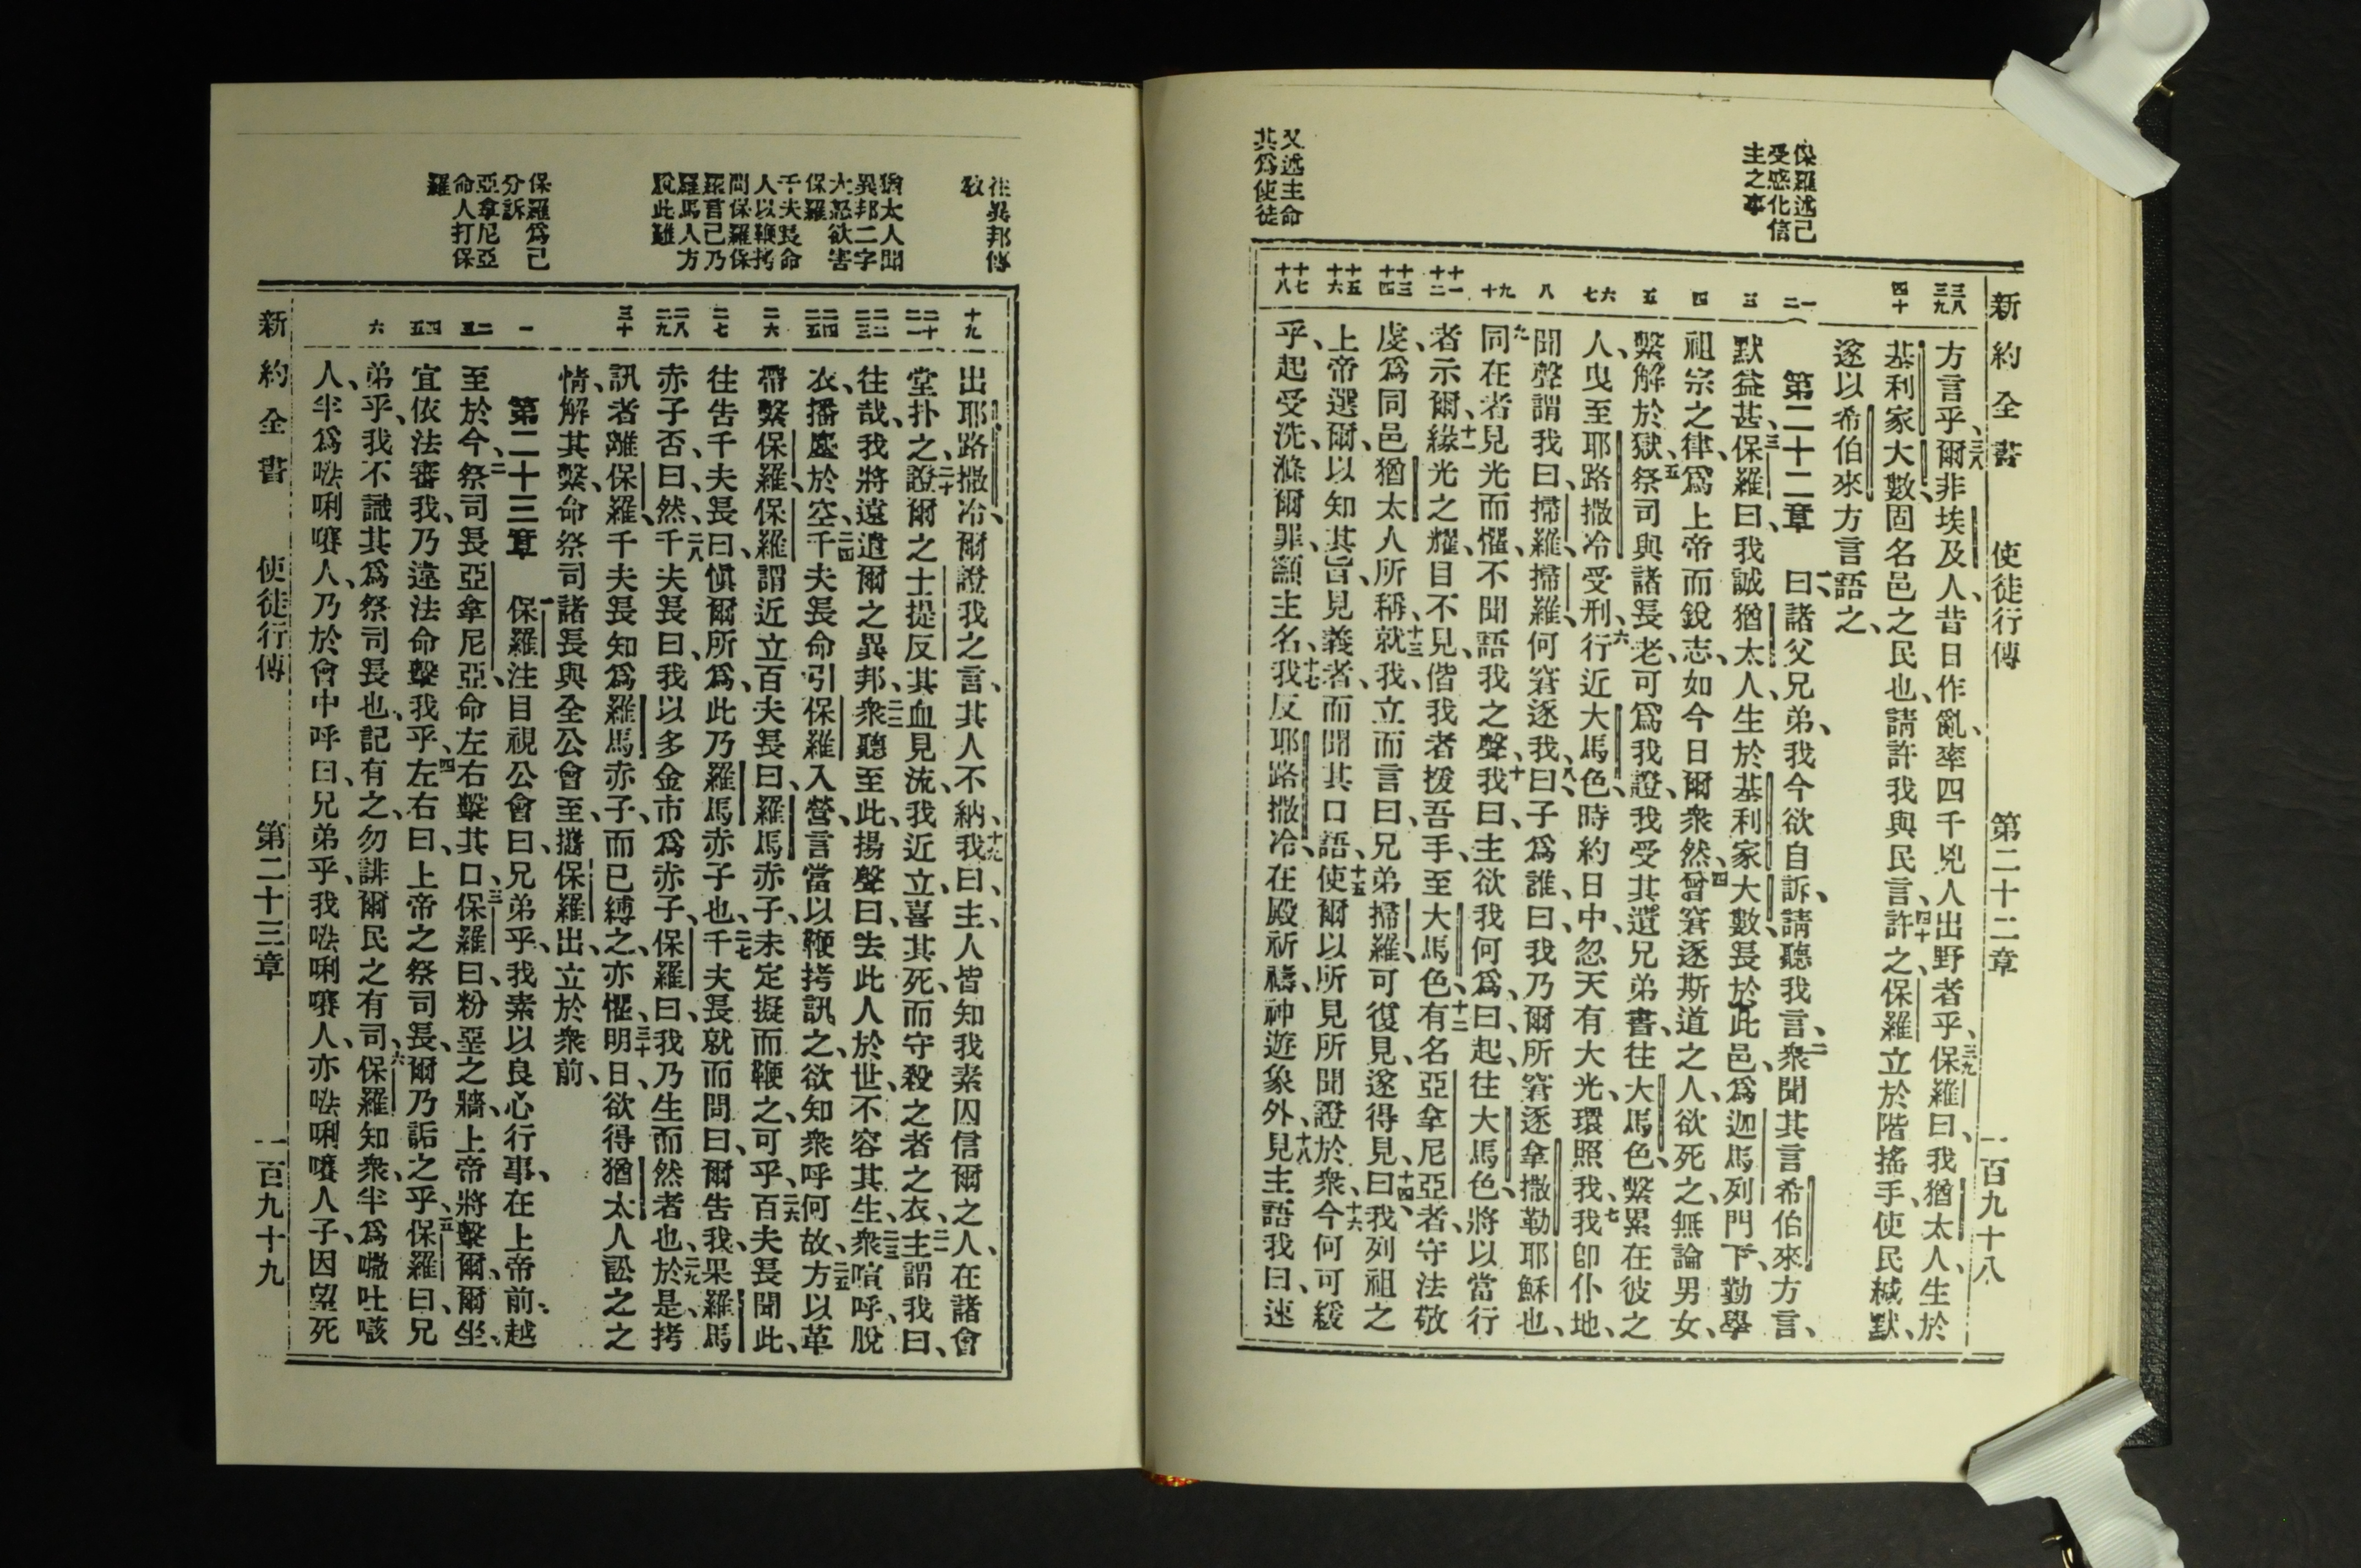 新約全書 使徒行傳 第二十二章 一百九十八
保羅述己
受感化信
主之事
又述主命
其爲使徒
三八
三九
四十
一
二
三
四
五
六
七
八
九
十
十一
十二
十三
十四
十五
十六
十七
十八
方言乎、三八爾非埃及人、昔日作亂、率四千兇人出野者乎、三九保羅曰、我猶太人、生於
基利家大數、固名邑之民也、請許我與民言、四十許之、保羅立於階、搖手、使民緘默、
遂以希伯來方言語之、
第二十二章 一曰、諸父兄弟、我今欲自訴、請聽我言、二衆聞其言希伯來方言、
默益甚、三保羅曰、我誠猶太人、生於基利家大數、長於此邑、爲迦馬列門下、勤學
祖宗之律、爲上帝而銳志、如今日爾衆然、四曾窘逐斯道之人、欲死之、無論男女、
繫解於獄、五祭司與諸長老、可爲我證、我受其遺兄弟書、往大馬色、繫累在彼之
人、曳至耶路撒冷受刑、六行近大馬色、時約日中、忽天有大光、環照我、七我卽仆地、
聞聲謂我曰、掃羅、掃羅、何窘逐我、八曰、子爲誰、曰、我乃爾所窘逐拿撒勒耶穌也、
九同在者見光而懼、不聞語我之聲、十我曰、主欲我何爲、曰、起、往大馬色、將以當行
者示爾、十一緣光之耀、目不見、偕我者援吾手、至大馬色、十二有名亞拿尼亞者、守法敬
虔、爲同邑猶太人所稱、十三就我、立而言曰、兄弟掃羅、可復見、遂得見、十四曰、我列祖之
上帝選爾、以知其旨、見義者、而聞其口語、十五使爾以所見所聞證於衆、十六今何可緩
乎、起受洗、滌爾罪、籲主名、十七我反耶路撒冷、在殿祈禱、神遊象外、十八見主語我曰、速
往異邦傳
敎
猶太人聞
異邦二字
大怒欲害
保羅
千夫長命
人以鞭拷
問保羅保
羅言己乃
羅馬人方
脫此難
保羅爲己
分訴
亞拿尼亞
命人打保
羅
十九
二十
二一
二二
二三
二四
二五
二六
二七
二八
二九
三十
一
二
三
四
五
六
出耶路撒冷、爾證我之言、其人不納、十九我曰、主、人皆知我素囚信爾之人、在諸會
堂扑之、二十證爾之士提反其血見流、我近立、喜其死、而守殺之者之衣、二一主謂我曰、
往哉、我將遠遣爾之異邦、二二衆聽至此、揚聲曰、去此人於世、不容其生、二三衆喧呼、脫
衣、播塵於空、二四千夫長命引保羅入營、言當以鞭拷訊之、欲知衆呼何故、二五方以革
帶繫保羅、保羅謂近立百夫長曰、羅馬赤子、未定擬而鞭之、可乎、二六百夫長聞此、
往告千夫長曰、愼爾所爲、此乃羅馬赤子也、二七千夫長就而問曰、爾告我、果羅馬
赤子否、曰、然、二八千夫長曰、我以多金市爲赤子、保羅曰、我乃生而然者也、二九於是拷
訊者離保羅、千夫長知爲羅馬赤子、而已縛之、亦懼、三十明日、欲得猶太人訟之之
情、解其繫、命祭司諸長與全公會至、攜保羅出、立於衆前、
第二十三章 一保羅注目視公會曰、兄弟乎、我素以良心行事、在上帝前、越
至於今、二祭司長亞拿尼亞、命左右擊其口、三保羅曰、粉堊之牆、上帝將擊爾、爾坐、
宜依法審我、乃違法命擊我乎、四左右曰、上帝之祭司長、爾乃詬之乎、五保羅曰、兄
弟乎、我不識其爲祭司長也、記有之、勿誹爾民之有司、六保羅知衆、半爲㗔吐㗒
人、半爲㕸唎㘔人、乃於會中呼曰、兄弟乎、我㕸唎㘔人、亦㕸唎㘔人子、因望死
新約全書 使徒行傳 第二十三章 一百九十九